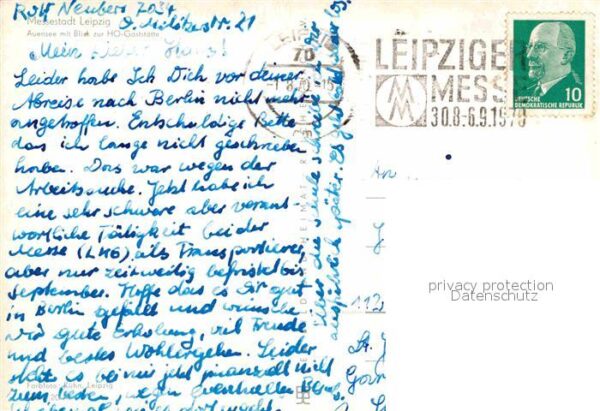 Rolf Neubert 7034
O. Militzerstr. 21
Messestadt Leipzig
Auensee mit Blick zur HO-Gaststätte
Mein lieber Hans!
Leider habe Ich Dich vor deiner
Abreise nach Berlin nicht mehr
angetroffen. Entschuldige Bitte
das ich lange nicht geschrieben
haben. Das war wegen der
Arbeitssuche. Jetzt habe ich
eine sehr schwere aber verant-
wortliche Tätigkeit bei der
Messe (LMG), als Transportierer,
aber nur zeitweilig befristet bis
September. Hoffe das es Dir gut
in Berlin gefällt und wünsche
Dir gute Erholung, viel Freude
und bestes Wohlergehen. Leider
steht es bei mir jetzt finanziell nicht
zum besten, wegen
Über die Schule schreibe ich Dir
ausführlich später. Es
LEIPZIGER
MESSE
30.8.-6.9.1970
70
DEUTSCHE
DEMOKRATISCHE REPUBLIK
10
An
112
privacy protection
Datenschutz
Farbfoto: Kühn, Leipzig